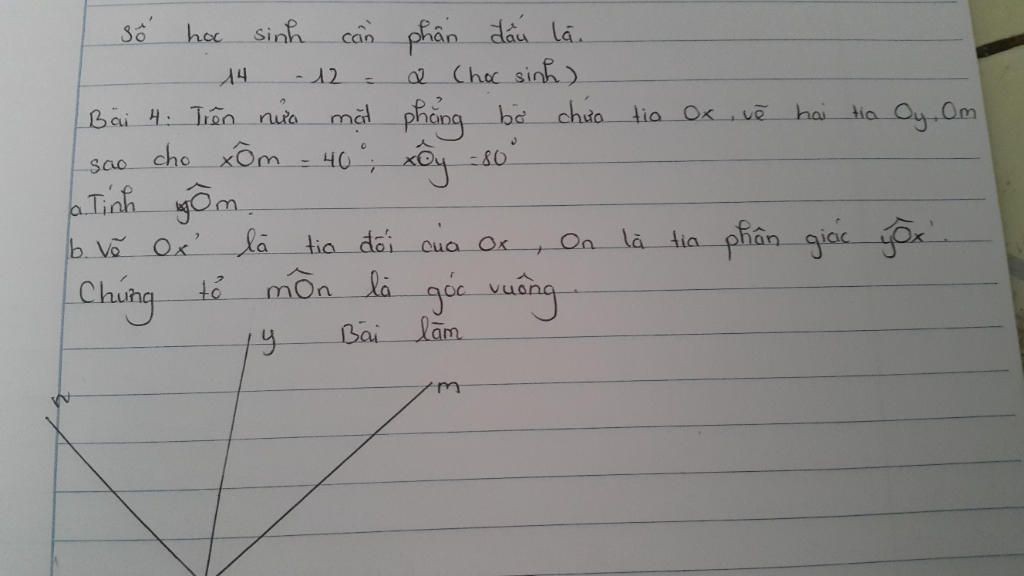 Số học sinh cần phấn đấu là.
14 - 12 = 2 (học sinh)
Bài 4: Trên nửa mặt phẳng bờ chứa tia Ox, vẽ hai tia Oy, Om
sao cho xÔm = 40°; xÔy = 80°
a. Tính yÔm.
b. Vẽ Ox' là tia đối của Ox, On là tia phân giác yÔx'.
Chứng tỏ mÔn là góc vuông.
y Bài làm
n m